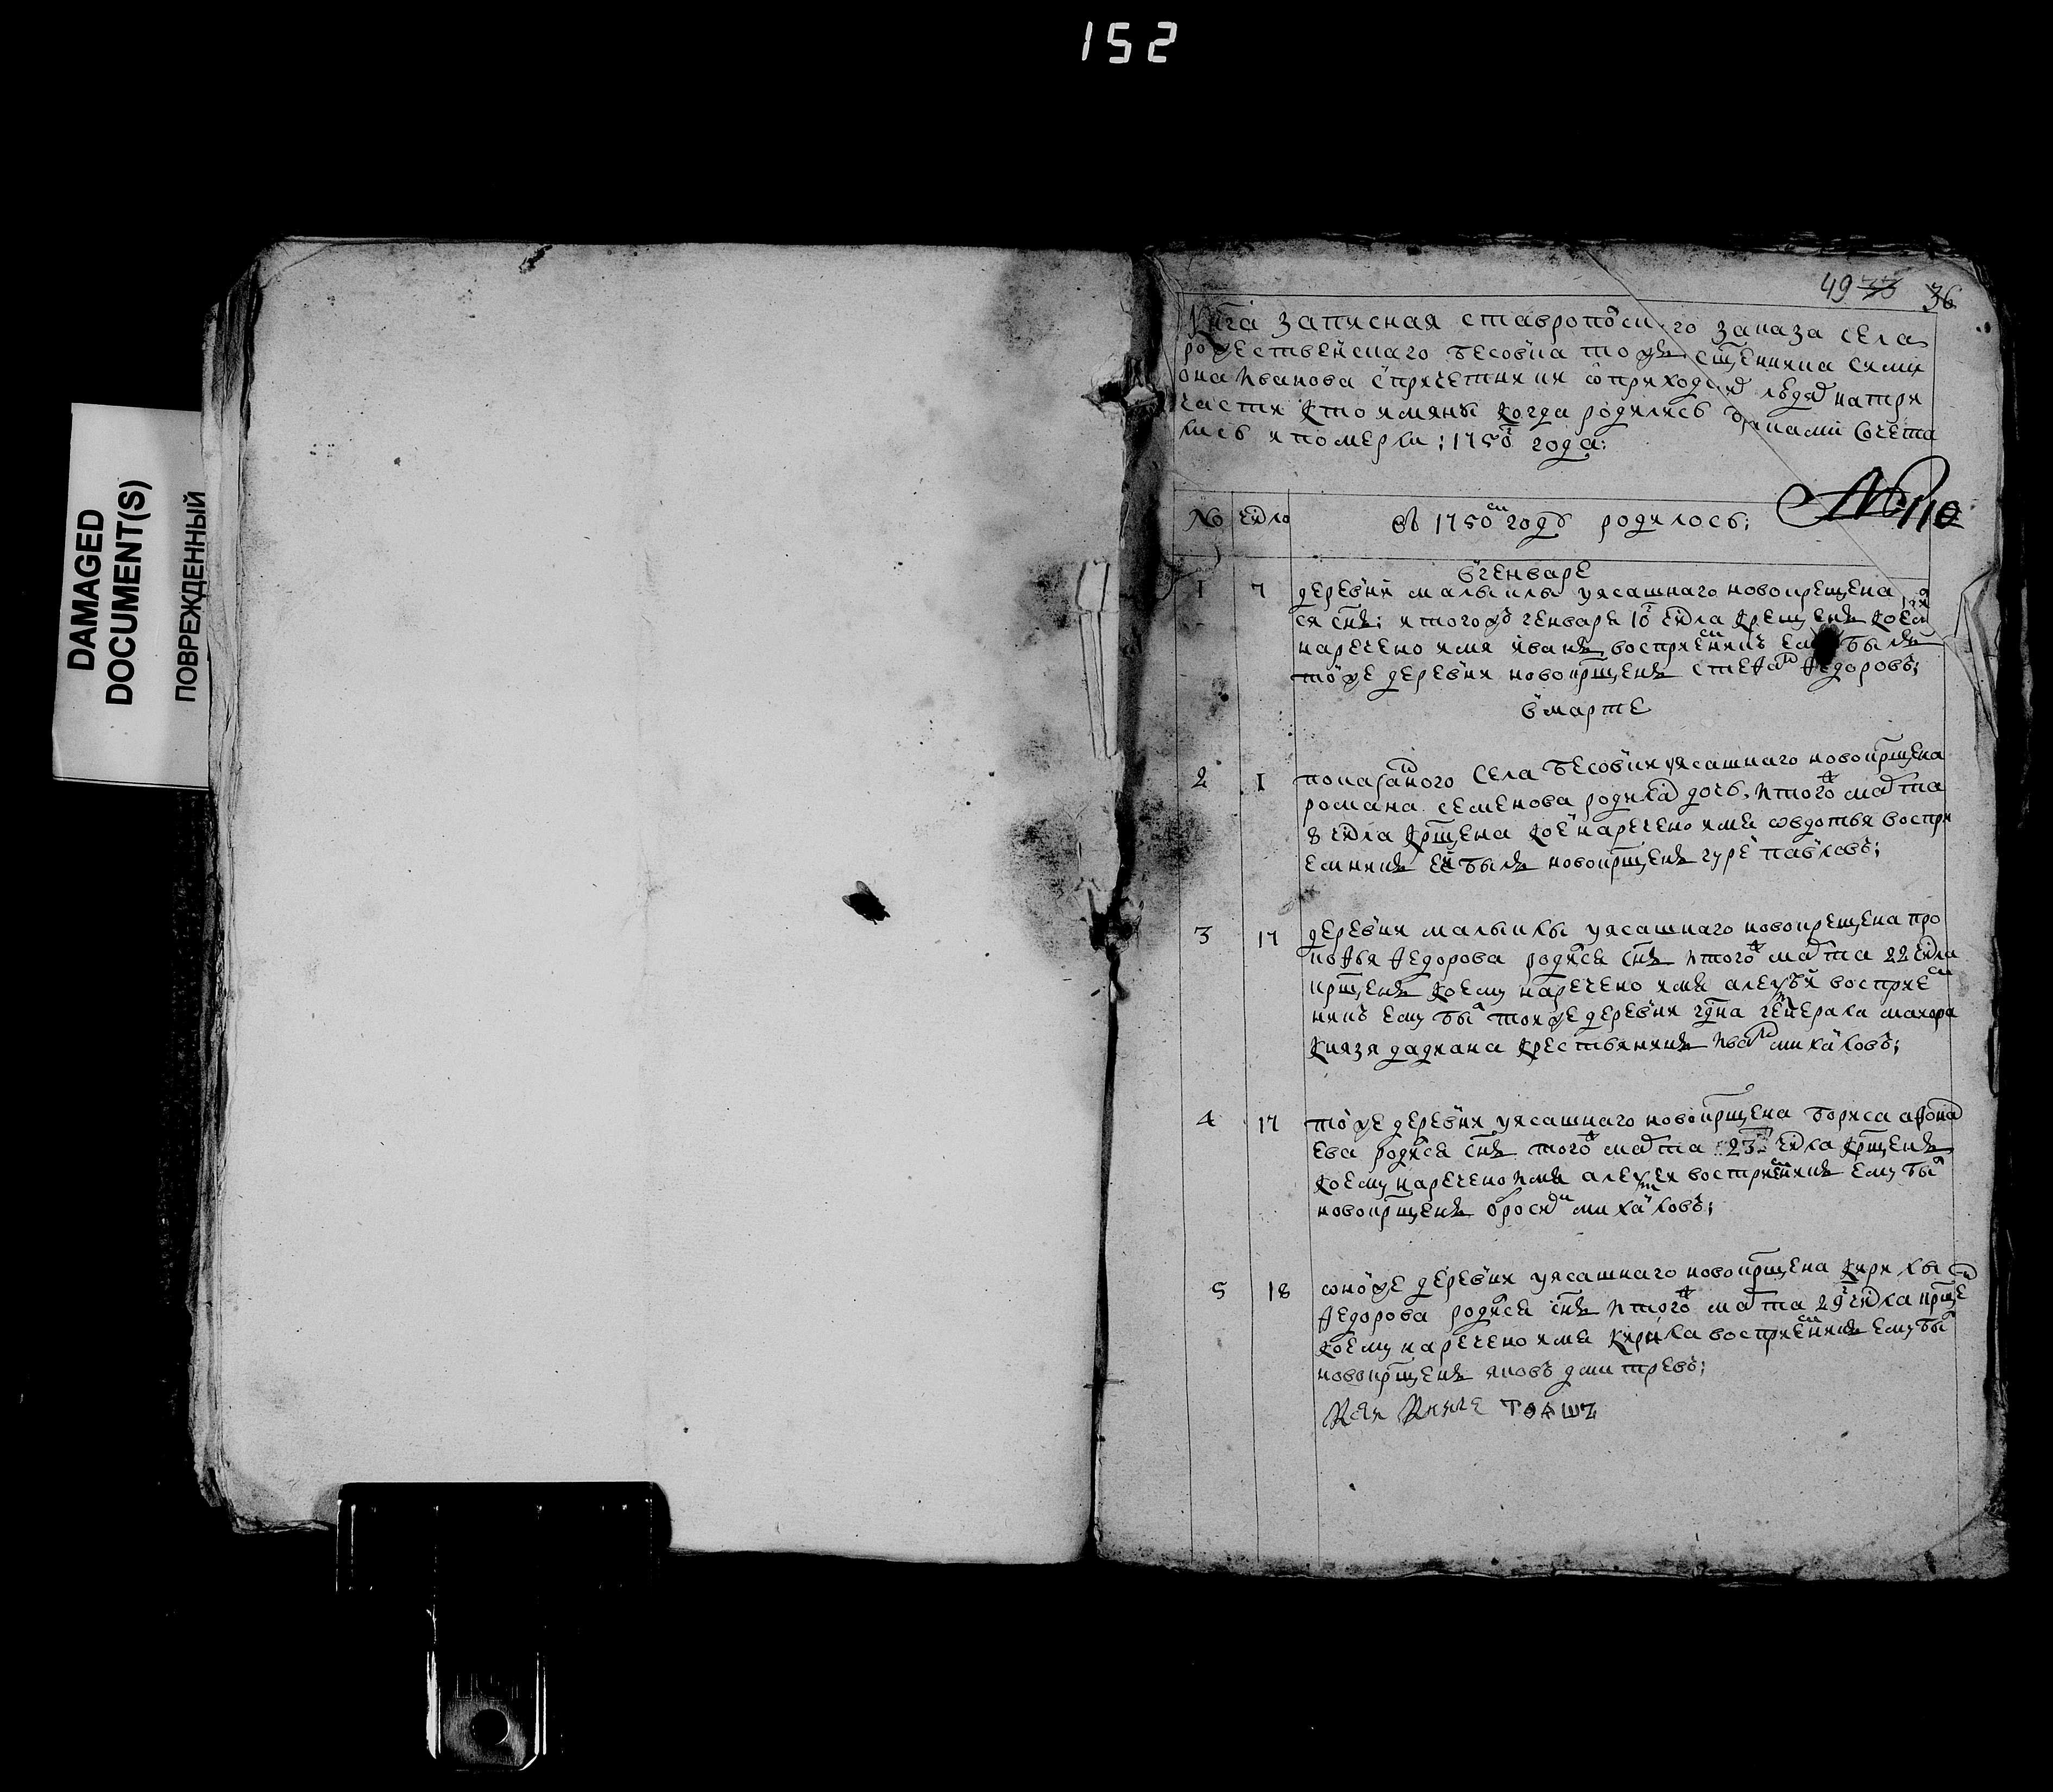 152
DAMAGED
DOCUMENT(S)
ПОВРЕЖДЕННЫЙ
49 33 36
Книга записная ставропо го заказа села
рожественскаго бесовка то ж сщенника сими
она иванова с причетники о приходцких людях на три
части кто имяны когда родились браками сочета
лись и померли : 1750 года:
№ число въ 1750м году родилось;
№ 110
в генваре
1 7 деревни малыклы у ясашнаго новокрещена
ся снъ; и того ж генваря 10 числа крещенъ коем
наречено имя иванъ, восприемникъ ем былъ
тоже деревни новокрщенъ стефан федоровъ;
в марте
2 1 показаного села бесовки у ясашнаго новокрщена
романа семенова родилас дочь, и того ж марта
8 числа крщена кое наречено имя овдотья воспри
емникъ еи былъ новокрщенъ гуре павловъ;
3 17 деревни малыклы у ясашнаго новокрещена про
кофья федорова родися снъ и того ж марта 22 числа
крщенъ коему наречено имя алексѣй восприем
никъ ему был тоя же деревни гдна генерала маиора
князя дадиана крестьянинъ иван михаиловъ;
4 17 тоже деревни у ясашнаго новокрщена бориса афонас
ева родися снъ того ж марта 23 числа крщенъ
коему наречено имя алексеи восприемникъ ему был
новокрщенъ михаиловъ;
5 18 оноже деревни у ясашнаго новокрщена кирилы
федорова родися снъ и того ж марта 29 числа крще
коему наречено имя кирила восприемникъ ему был
новокрщенъ яковъ дмитревъ;